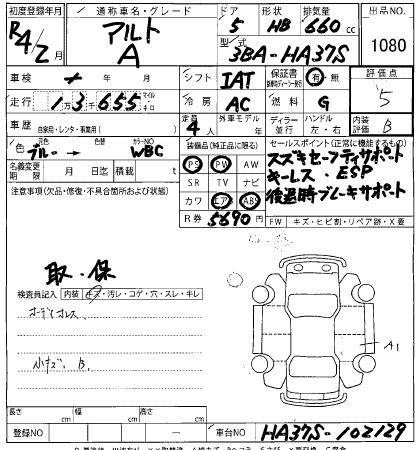 初度登録年月 通称車名・グレード ドア 形状 排気量 出品NO.
R4/2月 アルト A 5 HB 660 cc 1080
型式 3BA-HA37S
車検 年 月 シフト IAT 保証書 有 無 評価点
走行 1万3千655 マイル キロ 冷房 AC 燃料 G 5
車歴 自家用・レンタ・事業用( ) 定員 4人 外車モデル 年 ディーラー 並行 ハンドル 左・右 内装評価 B
色 ブルー → 色替 カラーNO WBC 装備品(純正品に限る) セールスポイント(正常に機能するもの)
名義変更期限 月 日迄 積載 t PS PW AW スズキセーフティサポート
注意事項(欠品・修復・不具合箇所および状態) SR TV ナビ キーレス・ESP
カワ エアB ABS 後退時ブレーキサポート
R券 5690円 FW キズ・ヒビ割・リペア跡・X要
取・保
検査員記入 内装 キズ・汚レ・コゲ・穴・スレ・キレ
小キズ B
A1
長さ cm 幅 cm 高さ cm
登録NO ー 車台NO HA37S-102129